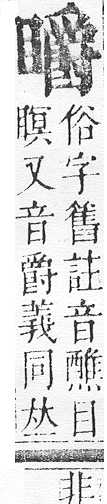 俗字舊註音醮目
瞑又音爵義同𠀤
非